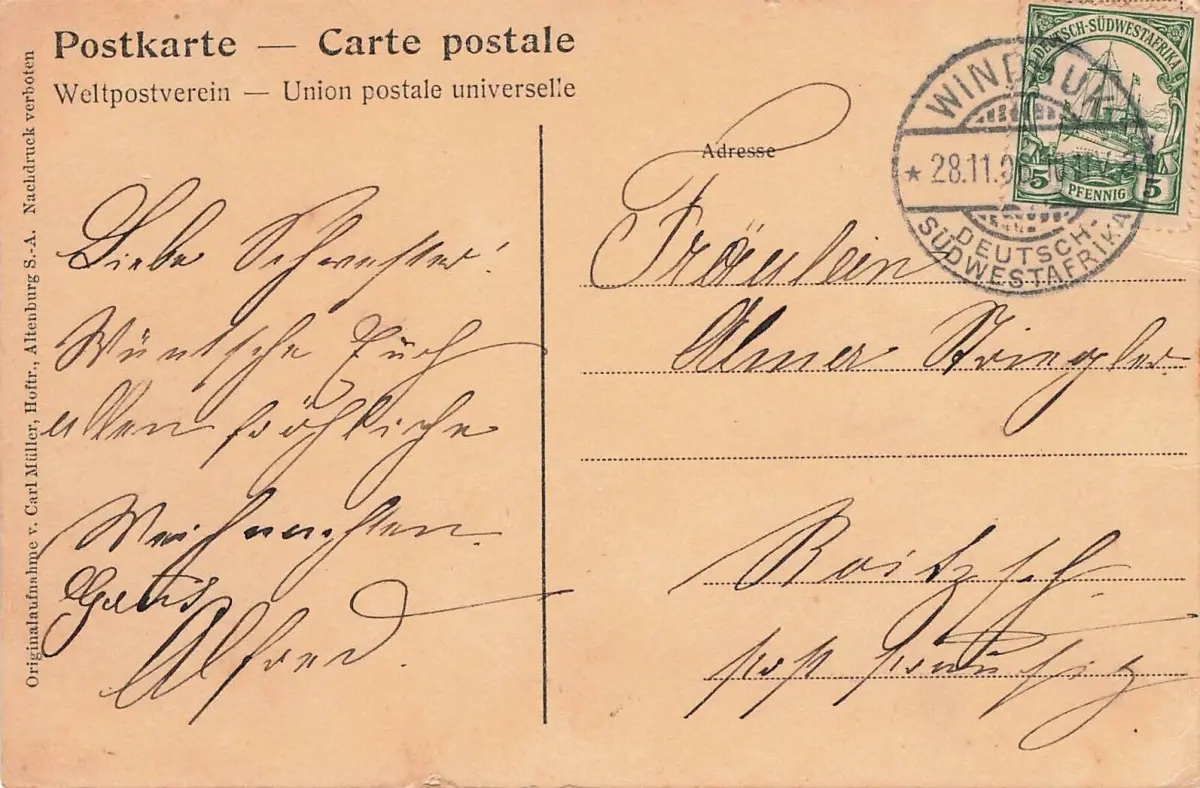 Postkarte — Carte postale
Weltpostverein — Union postale universelle
Originalaufnahme v. Carl Müller, Hoftr., Altenburg S.-A. Nachdruck verboten
Liebe Schwester!
Wünsche Euch
allen fröhliche
Weihnachten.
Alfred.
Adresse
Fräulein
Alma Striegler
Roitzsch
post
DEUTSCH-SÜDWESTAFRIKA
5 PFENNIG 5
WINDHUK
* 28.11.06
DEUTSCH-
SÜDWESTAFRIKA